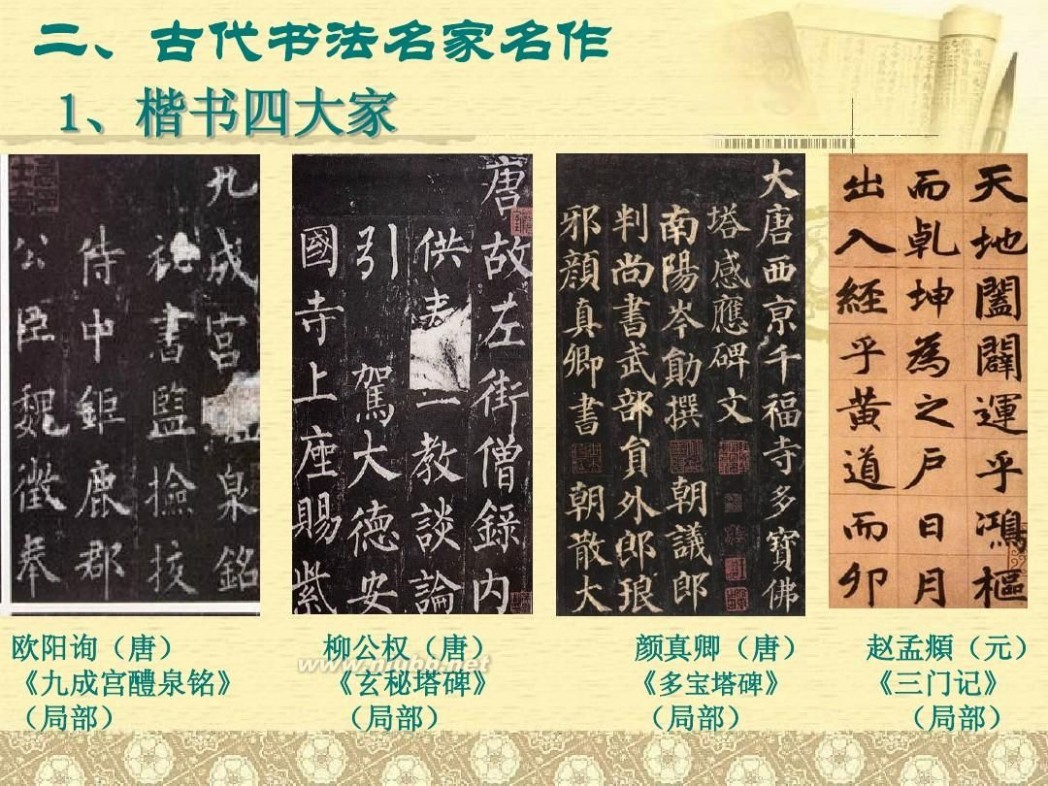 二、古代书法名家名作
1、楷书四大家
九成宫泉銘
秘書監撿挍
侍中鉅鹿郡
公臣魏徵奉
唐故左街僧錄内
供表一教談論
引駕大德安
國寺上座賜紫
大唐西京千福寺多寶佛
塔感應碑文
南陽岑勛撰朝議郎
判尚書武部員外郎琅
邪顏真卿書朝散大
天地闔闢運乎鴻樞
而乹坤為之户日月
出入經乎黄道而卯
欧阳询（唐）
《九成宫醴泉铭》
（局部）
柳公权（唐）
《玄秘塔碑》
（局部）
颜真卿（唐）
《多宝塔碑》
（局部）
赵孟頫（元）
《三门记》
（局部）